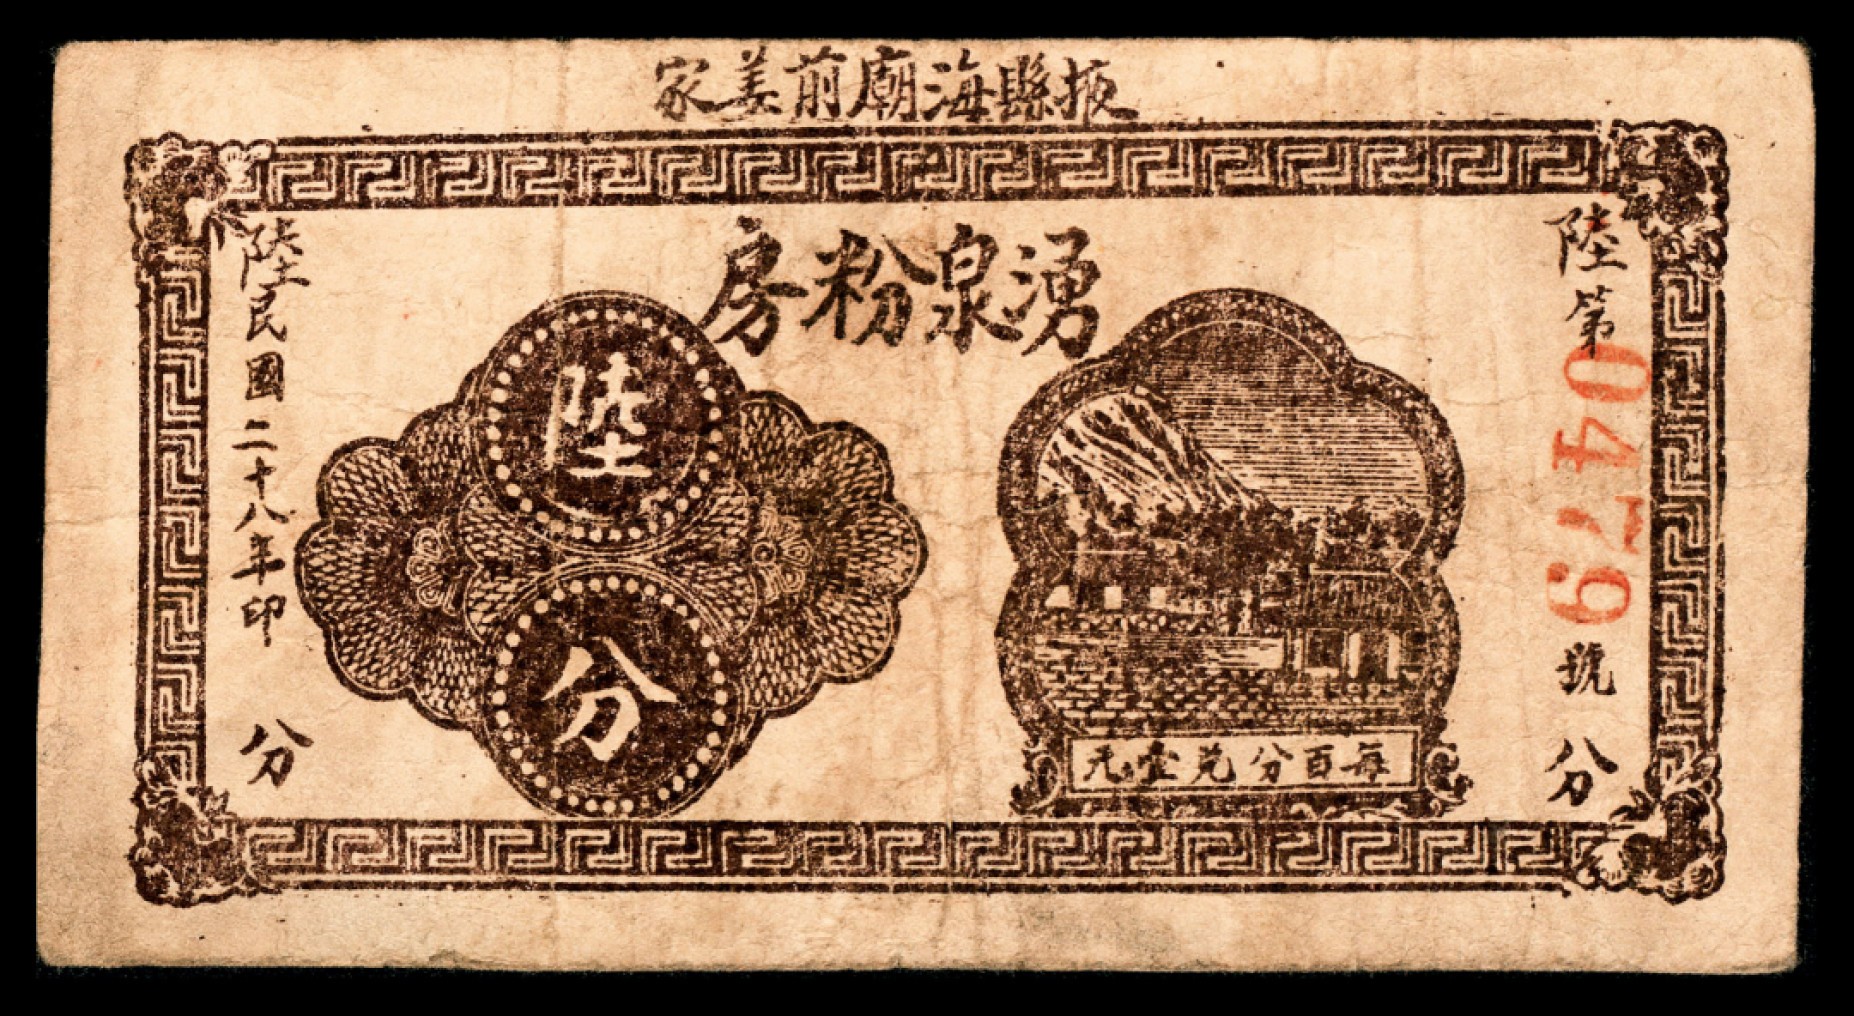 掖縣海廟前姜家
湧泉粉房
陸
第0479號
分
陸
分
每百分兑壹元
陸
民國二十八年印
分